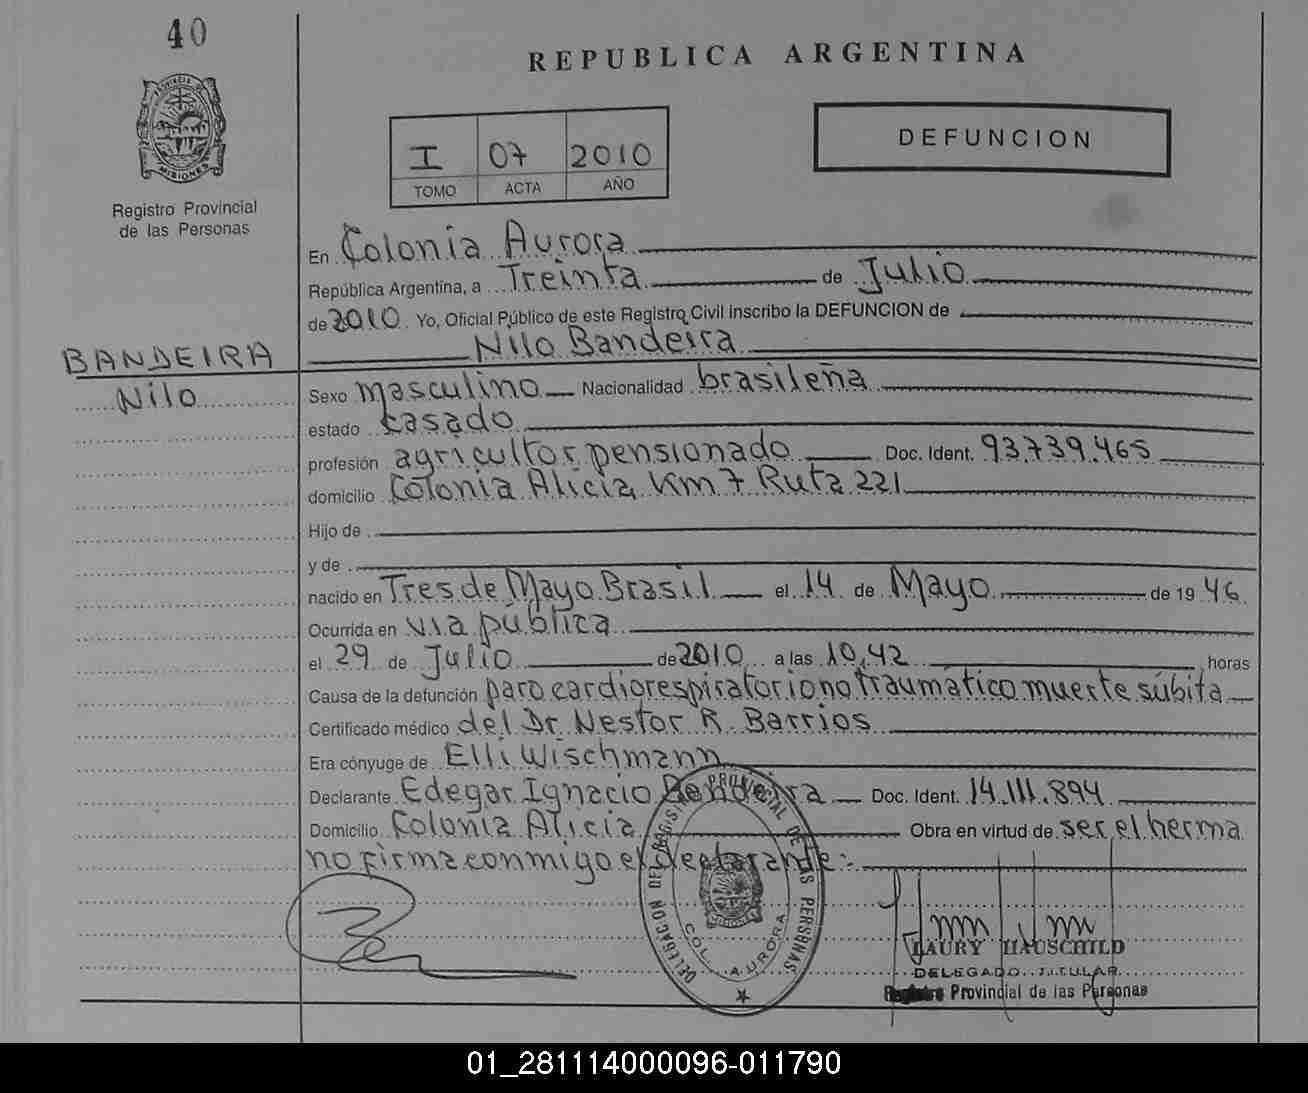 40
REPUBLICA ARGENTINA
PROVINCIA DE
MISIONES
Registro Provincial
de las Personas
I 07 2010
TOMO ACTA AÑO
DEFUNCION
En Colonia Aurora
República Argentina, a Treinta de Julio
de 2010 Yo, Oficial Público de este Registro Civil inscribo la DEFUNCION de
BANDEIRA
Nilo Bandeira
Nilo
Sexo masculino Nacionalidad brasileña
estado casado
profesión agricultor pensionado Doc. Ident. 93.739.465
domicilio Colonia Alicia Km 7 Ruta 221
Hijo de
y de
nacido en Tres de Mayo Brasil el 14 de Mayo de 19 46
Ocurrida en via pública
el 29 de Julio de 2010 a las 10,42 horas
Causa de la defunción paro cardiorespiratorio no traumatico muerte súbita
Certificado médico del Dr. Nestor R. Barrios
Era cónyuge de Elli Wischmann
Declarante Edegar Ignacio Bandeira Doc. Ident. 14.111.894
Domicilio Colonia Alicia Obra en virtud de ser el herma
no firma conmigo el declarante:-
DELEGACION DEL REGISTRO PROVINCIAL DE LAS PERSONAS
COL. AURORA
LAURY HAUSCHILD
DELEGADO TITULAR
Registro Provincial de las Personas
01_281114000096-011790